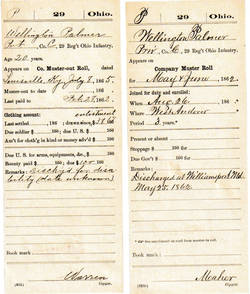 P 29 Ohio.
Wellington Palmer
Pvt., Co. C, 29 Reg't Ohio Infantry.
Age 20 years.
Appears on
Co. Muster-out Roll, dated
Louisville, Ky July 1865
Muster-out to date 186
Last paid to
Clothing account:
Last settled 186 ; drawn since $
Due soldier $ 100; due U. S. $ 100
Am't for cloth'g in kind or money adv'd $ 100
Due U. S. for arms, equipments, &c., $ 100
Bounty paid $ 100; due $ 100
Remarks: Discharg'd for disa
bility (date unknown)
Book mark:
Warren
Copyist.
P 29 Ohio.
Wellington Palmer
Priv., Co. C, 29 Reg't Ohio Infantry.
Appears on
Company Muster Roll
for May & June, 1862.
Joined for duty and enrolled:
When Aug 26, 186
Where West Andover
Period 3 years.
Present or absent
Stoppage, $ 100 for
Due Gov't, $ 100 for
Remarks:
Discharged at Williamsport Md.
May 25, 1862
Book mark:
Copyist.